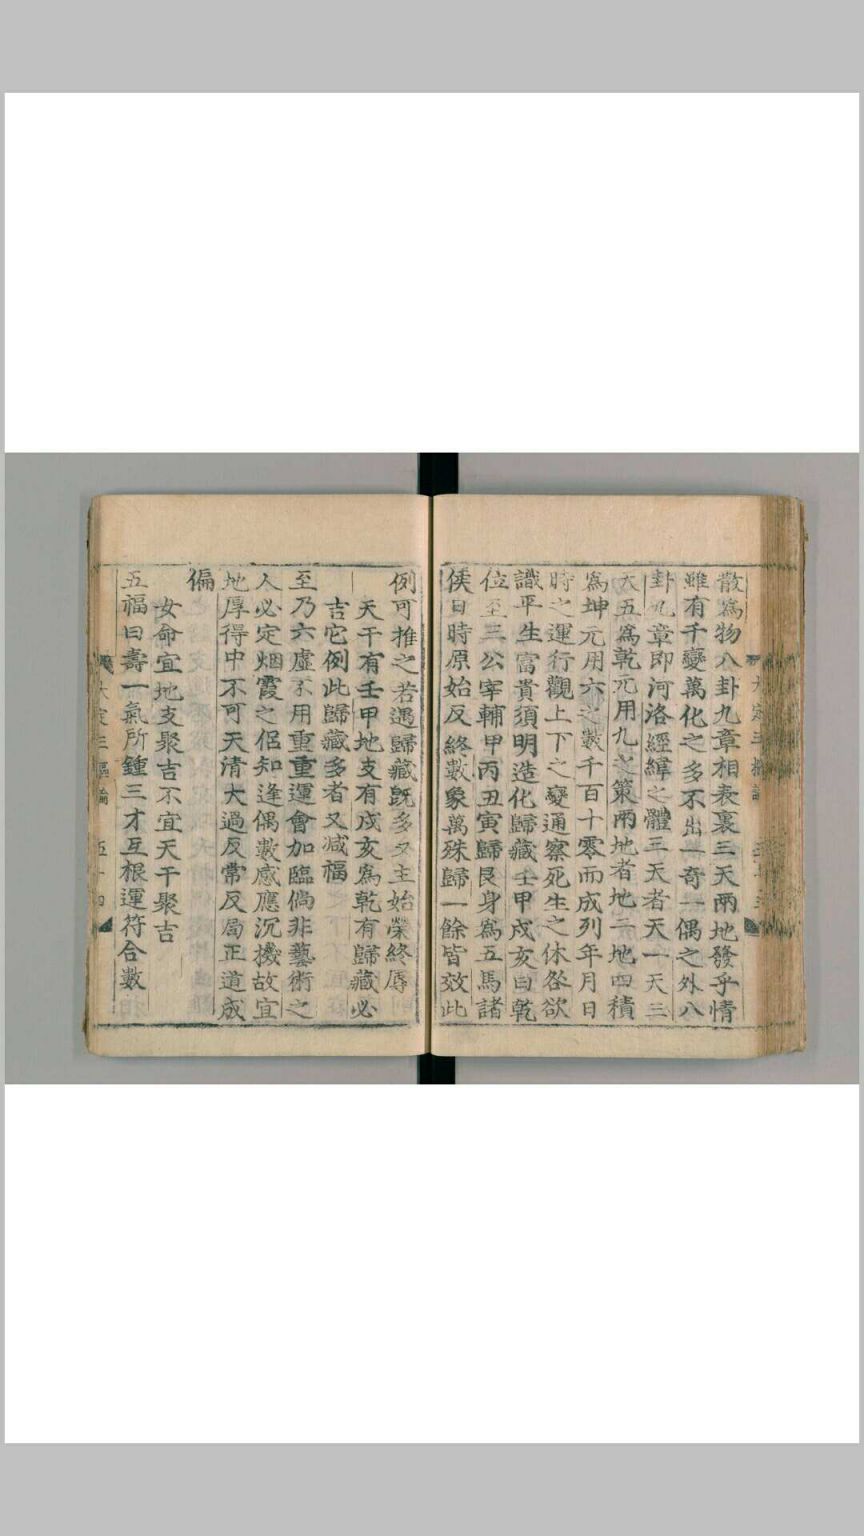 散爲物八卦九章相表裏三天兩地發乎情
雖有千變萬化之多不出一奇一偶之外八
卦九章即河洛經緯之體三天者天一天三
天五爲乾元用九之策兩地者地二地四積
爲坤元用六之數千百十零而成列年月日
時之運行觀上下之變通察死生之休咎欲
識平生富貴須明造化歸藏壬甲戌亥曰乾
位至三公宰輔甲丙丑寅歸艮身爲五馬諸
侯日時原始反終數象萬殊歸一餘皆效此
例可推之若遇歸藏旣多又主始榮終辱
天干有壬甲地支有戌亥爲乾有歸藏必
吉它例此歸藏多者又减福
至乃六虛不用重重運會加臨倘非藝術之
人必定烟霞之侣知逢偶數感應沉機故宜
地厚得中不可天清大過反常反局正道成
偏
女命宜地支聚吉不宜天干聚吉
五福曰壽一氣所鍾三才互根運符合數
大定三樞論 五十四